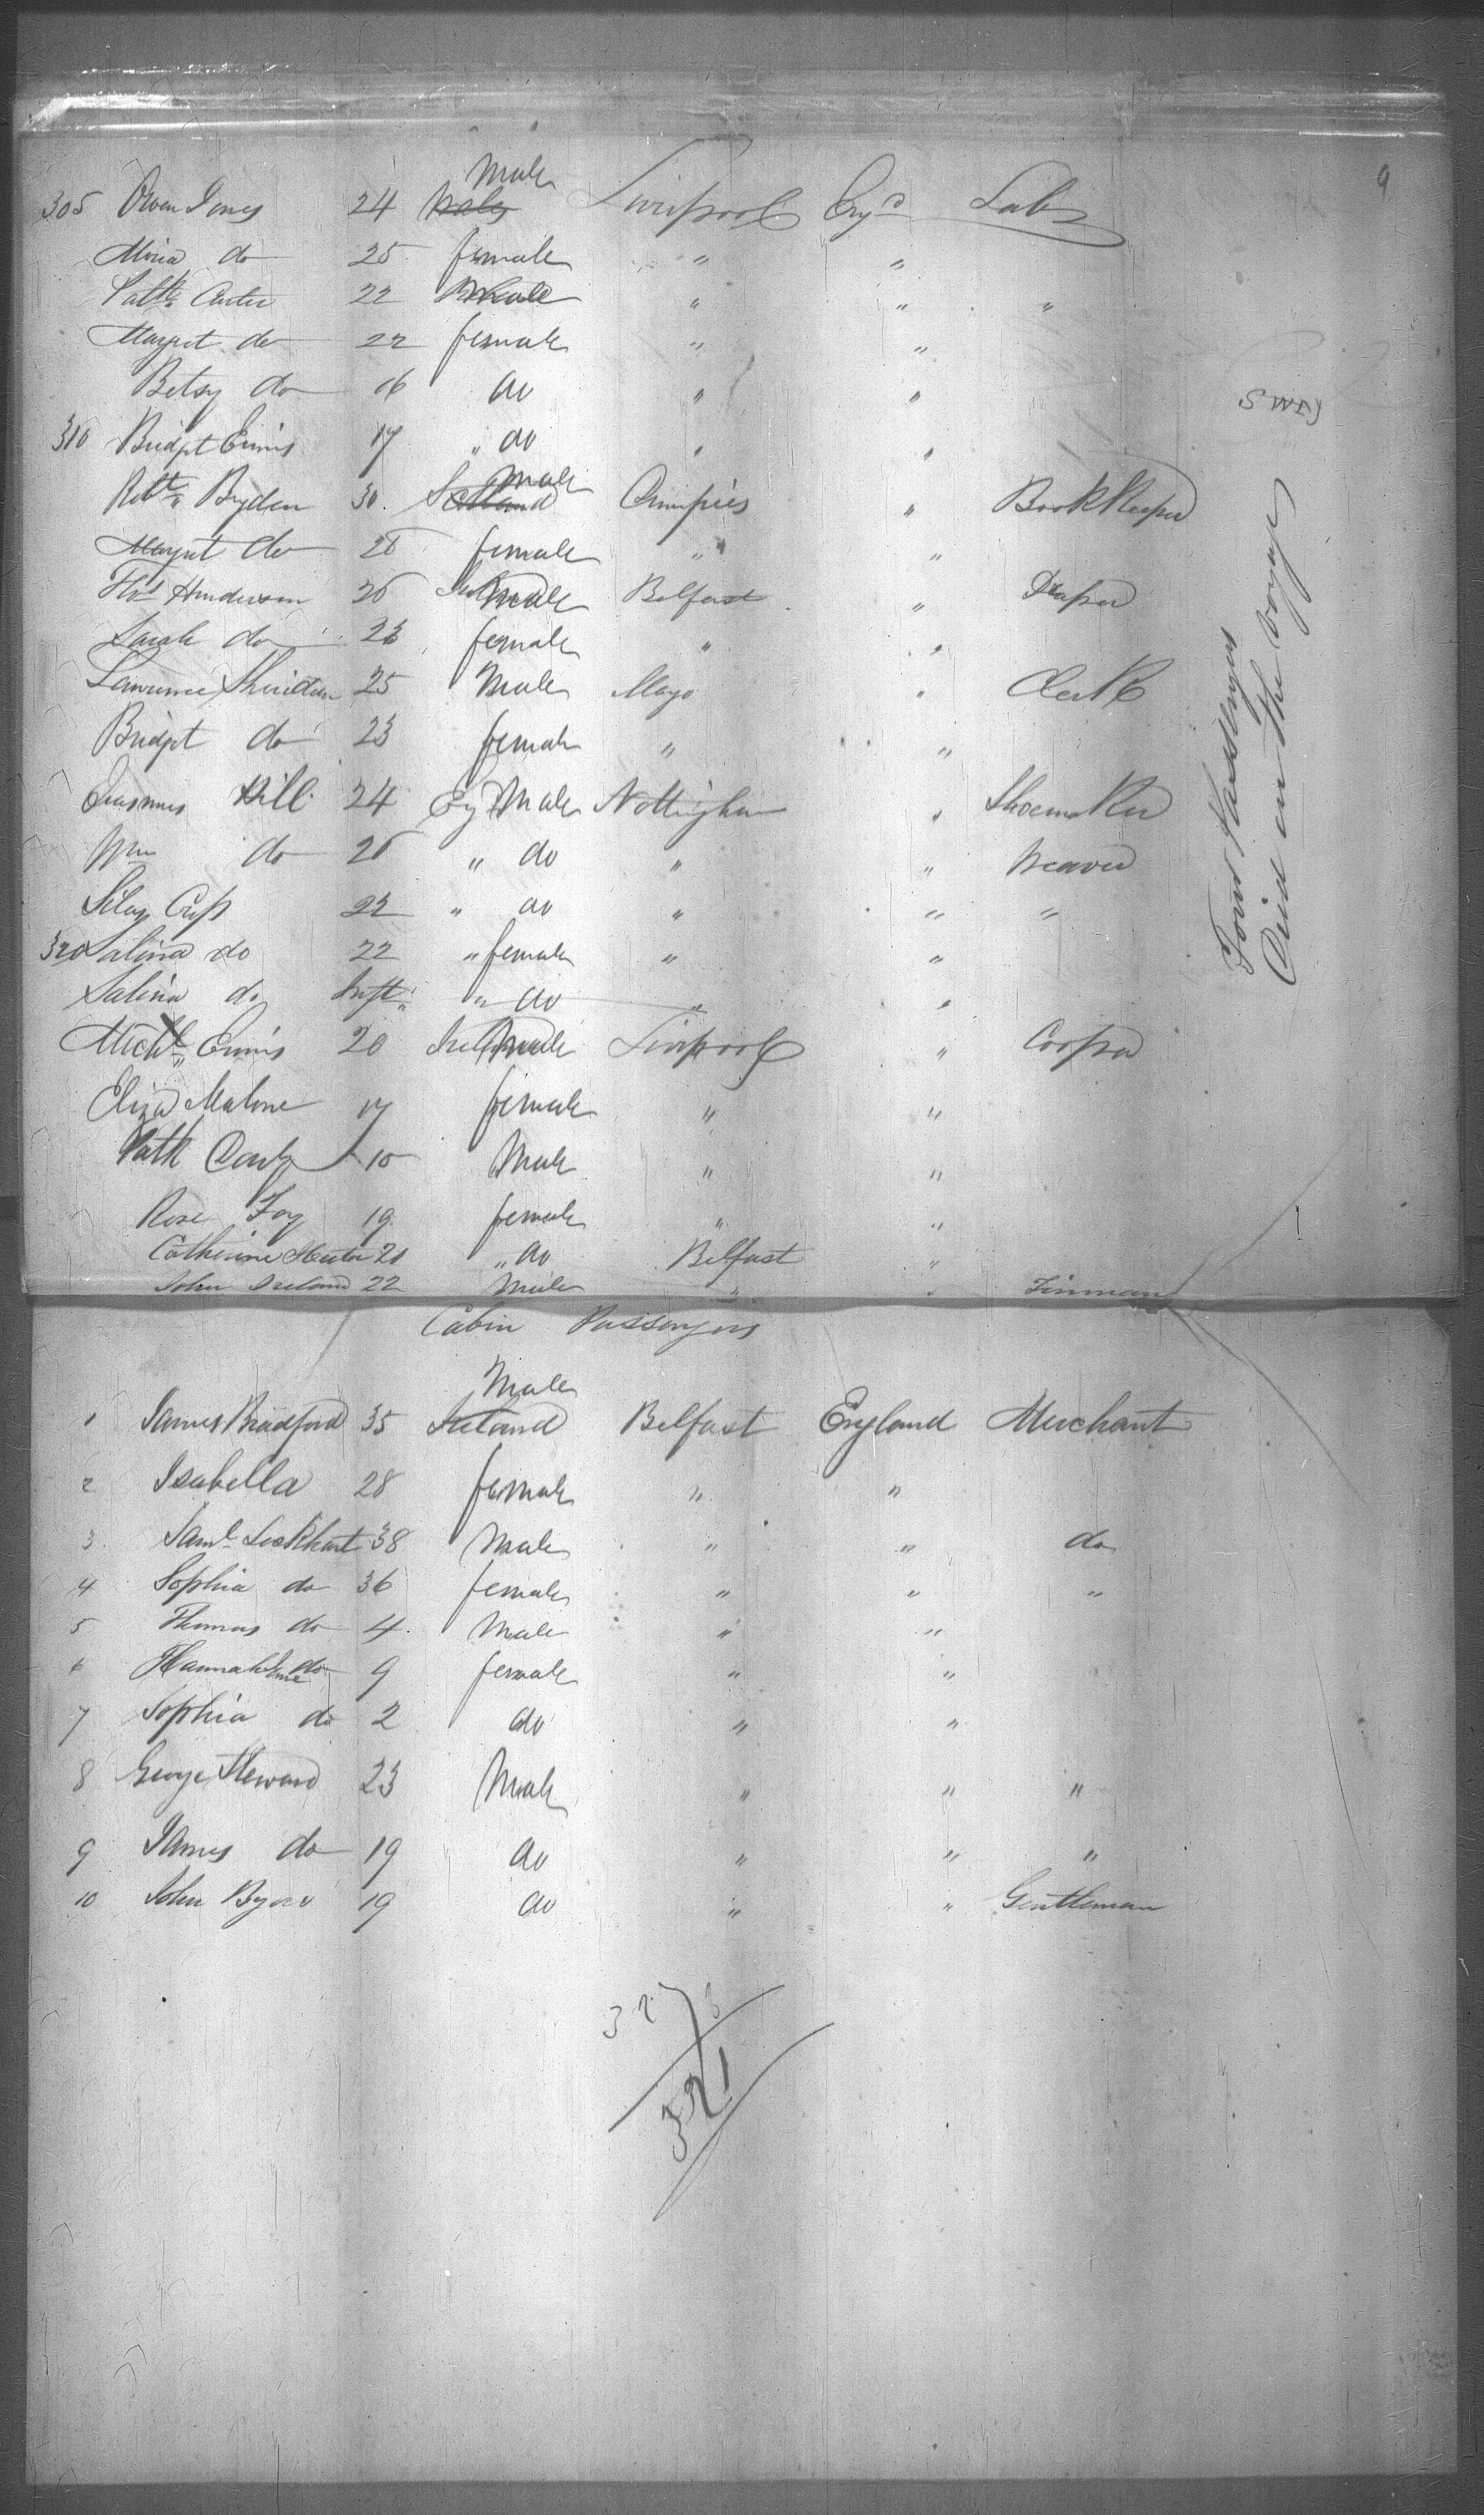 9
Male
305 Owen Jones 24 Wales Liverpool Eng d Lab
Maria do 25 female " "
Patk Carter 22 Male " " "
Margret do 22 female " "
Betsy do 16 do " "
310 Bridget Ennis 17 " do " "
Male
Robt Bryden 30 Scotland " Book Keeper
Margret do 28 female " "
Thos Henderson 26 Male Belfast " Draper
Sarah do 23 female " "
Lawrence Sheridan 25 Male Mayo " Clerk
Bridget do 23 female " "
Erasmus Hill 24 Eng Male Nottingham " Shoemaker
Wm do 26 " do " " Weaver
Silas Cuff 22 " do " " "
320 Salina do 22 " female " "
Salina do Inft " do " "
Michl Ennis 20 Ireland Male Liverpool " Cooper
Eliza Malone 17 female " "
Patk 10 Male " "
Rose Foy 19 female " "
Catherine 20 " do Belfast "
John Ireland 22 Male " "
Four Passengers
Died on the voyage
Cabin Passengers
Male
1 James Bradford 35 Ireland Belfast England Merchant
2 Isabella 28 female " "
3 Saml Lockhart 38 Male " " do
4 Sophia do 36 female " " "
5 Thomas do 4 Male " "
6 Hannah Jane do 9 female " "
7 Sophia do 2 do " "
8 George Steward 23 Male " " "
9 James do 19 do " " "
10 John 19 do " " Gentleman
321